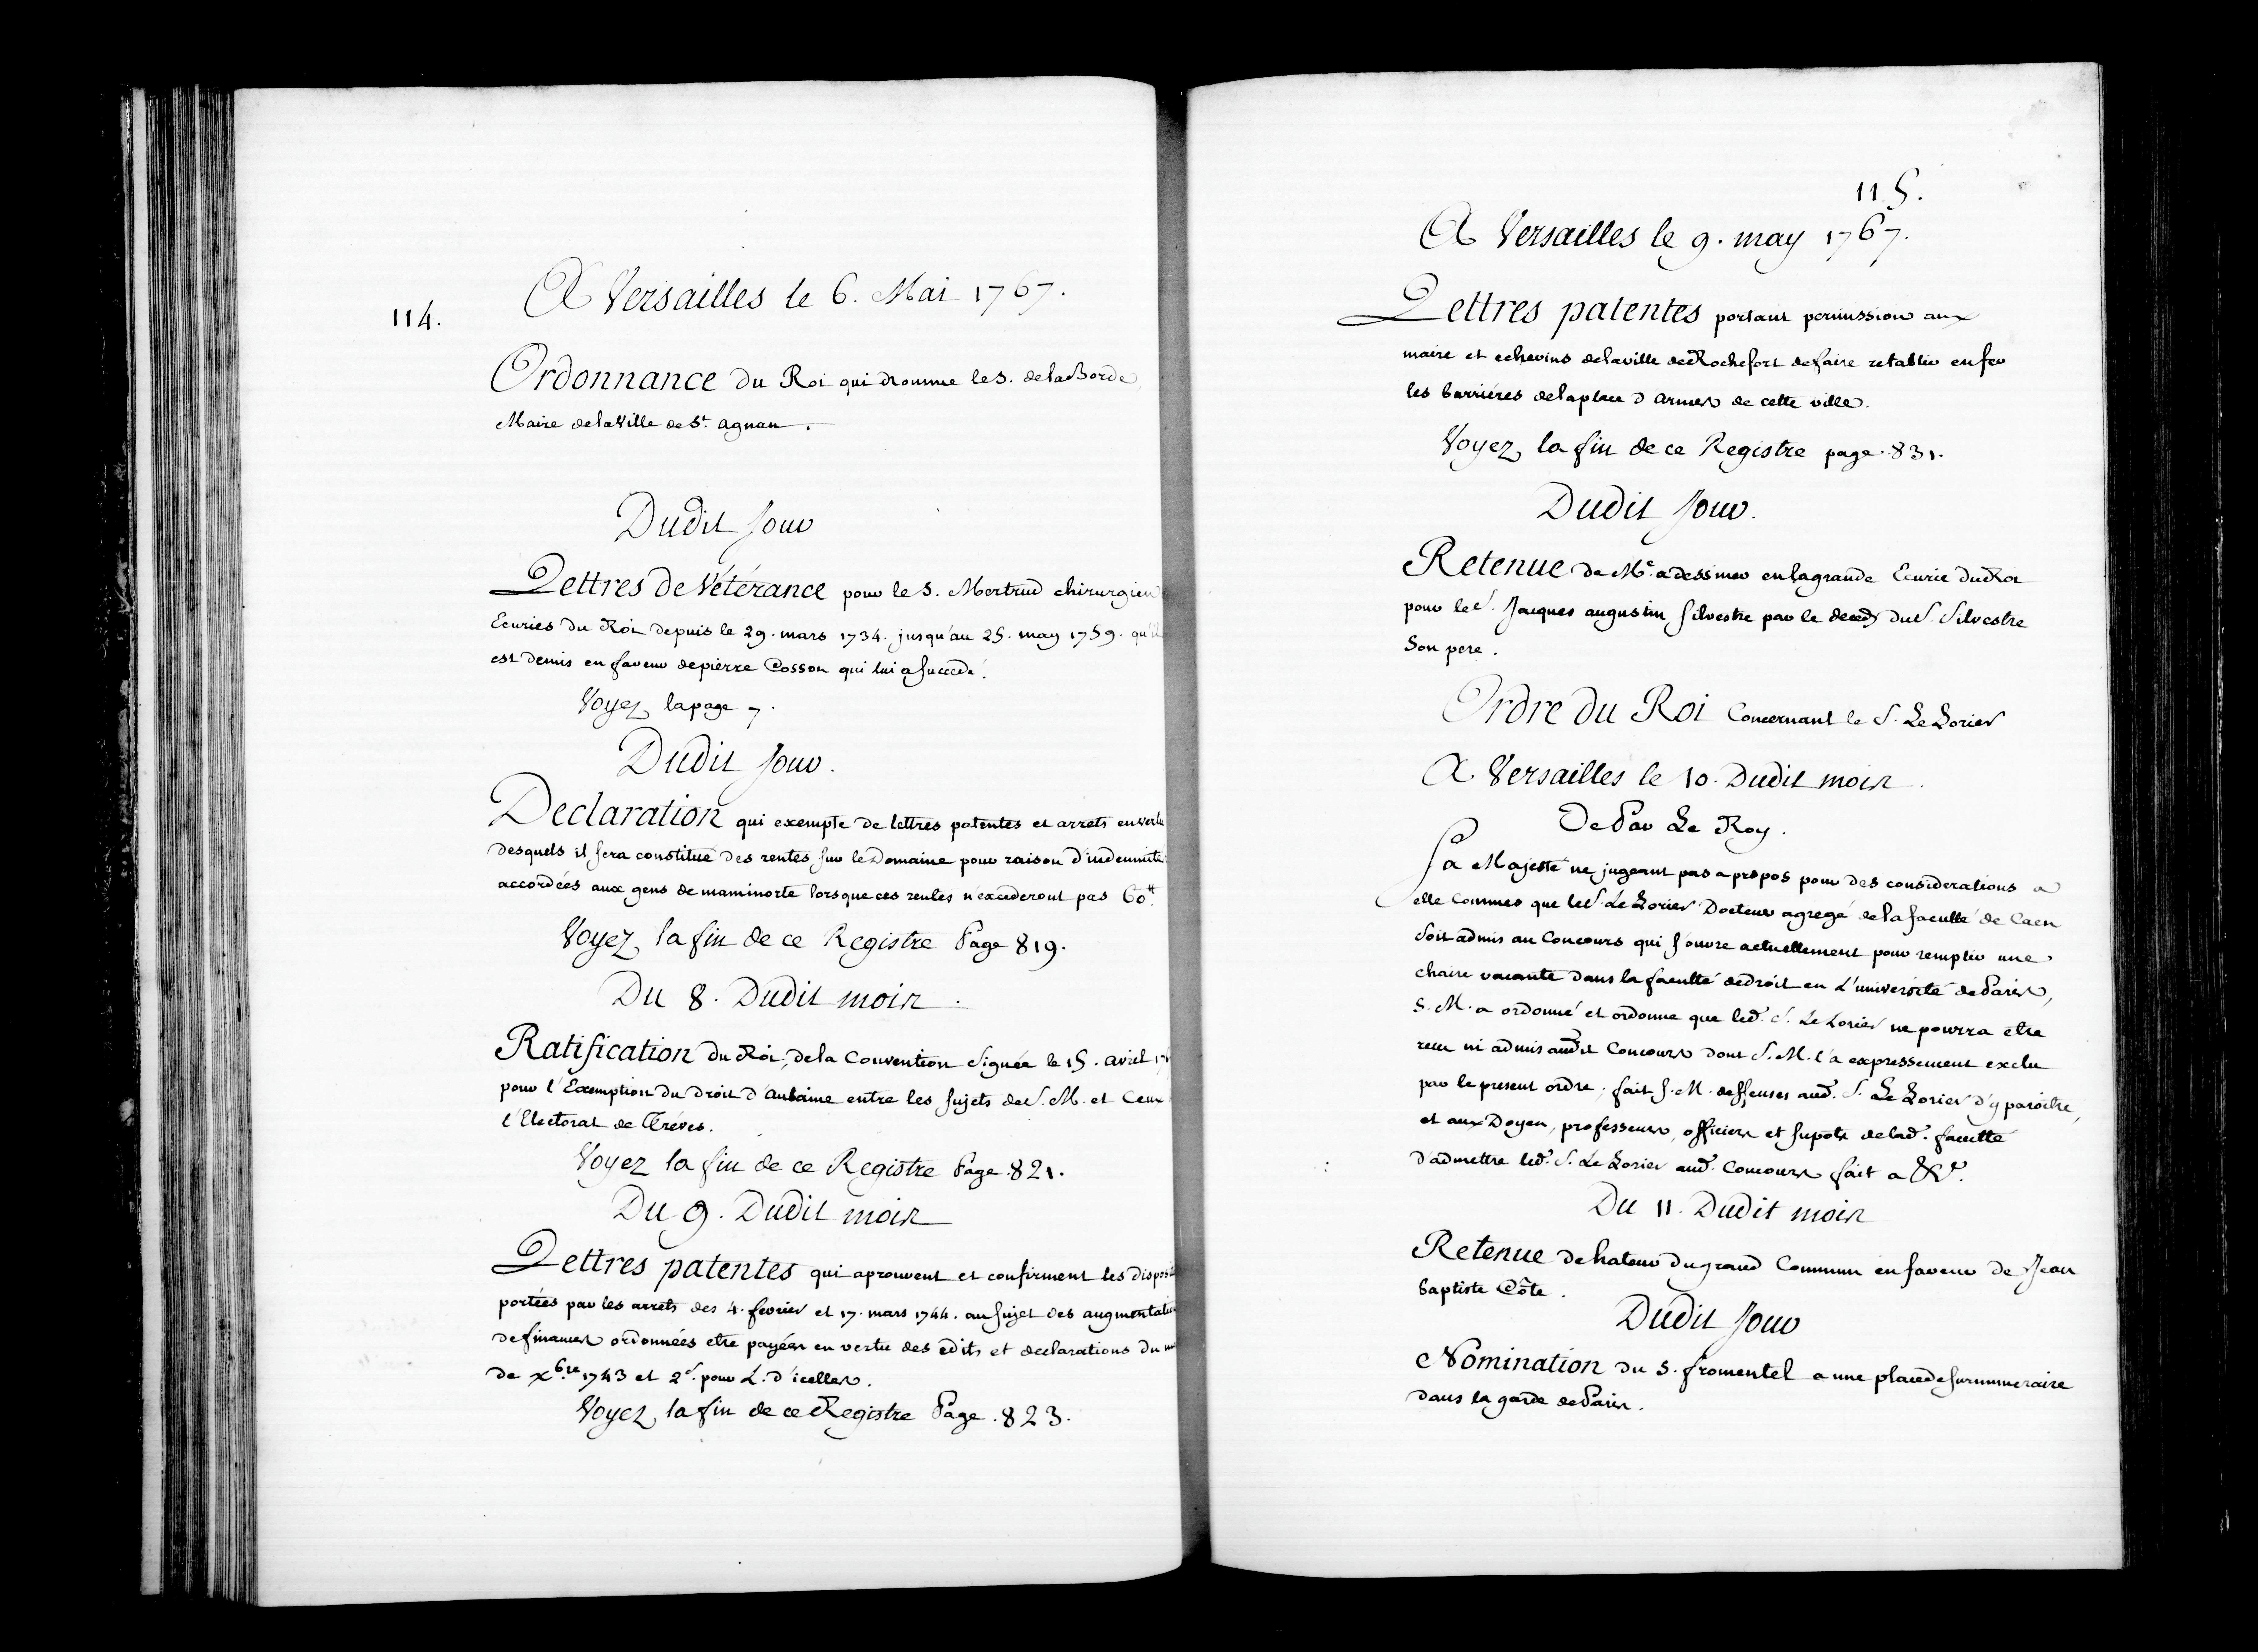 114.
A Versailles le 6. Mai 1767.
Ordonnance du Roi qui nomme le S. de la Borde
Maire de la Ville de St. agnan.
Dudit Jour
Lettres de Vétérance pour le S. Mertrud chirurgien
Ecuries du Roi depuis le 29. mars 1734. jusqu'au 25. may 1759. qu'il
est demis en faveur de pierre Cosson qui lui a succedé.
Voyez la page 7.
Dudit Jour.
Declaration qui exempte de lettres patentes et arrets en vertu
desquels il sera constitué des rentes sur le Domaine pour raison d'indemnité
accordées aux gens de mainmorte lorsque ces rentes n'excederont pas 60tt.
Voyez la fin de ce Registre Page 819.
Du 8. Dudit mois.
Ratification du Roi, de la Convention signée le 15. avril
pour l'Exemption du droit d'aubaine entre les sujets de S. M. et Ceux
l'Electorat de Tréves.
Voyez la fin de ce Registre Page 821.
Du 9. Dudit mois
Lettres patentes qui aprouvent et confirment les
portées par les arrets des 4. fevrier et 17. mars 1744. au sujet des
de finances ordonnées etre payées en vertu des edits et declarations du
de xbre. 1743 et 2 s. pour L. d'icelles.
Voyez la fin de ce Registre Page 823.
115.
A Versailles le 9. may 1767.
Lettres patentes portant permission aux
maire et echevins de la ville de Rochefort de faire retablir en fer
les barriéres de la place d'armes de cette ville.
Voyez la fin de ce Registre page 831.
Dudit Jour.
Retenue de Me. a dessiner en la grande Ecurie du Roi
pour le S. Jacques augustin Silvestre par le deced du S. Silvestre
Son pere.
Ordre du Roi Concernant le S. Le Lorier
A Versailles le 10. Dudit mois.
De Par Le Roy.
Sa Majesté ne jugeant pas a propos pour des considerations a
elle Connues que le S. Le Lorier Docteur agregé de la faculté de Caen
soit admis au Concours qui s'ouvre actuellement pour remplir une
chaire vacante dans la faculté de droit en L'université de Paris,
S. M. a ordonné et ordonne que led. S. Le Lorier ne pourra etre
recu ni admis audit Concours dont S. M. l'a expressement exclu
par le present ordre; fait S. M. deffenses aud. S. Le Lorier d'y paroitre,
et aux Doyen, professeurs, officiers et supots de lad. faculté
d'admettre led. S. Le Lorier aud. Concours fait a &c.
Du 11. Dudit mois
Retenue de hateur du grand Commun en faveur de Jean
baptiste Côte.
Dudit Jour
Nomination du S. fromentel a une place de surnumeraire
dans la garde de Paris.